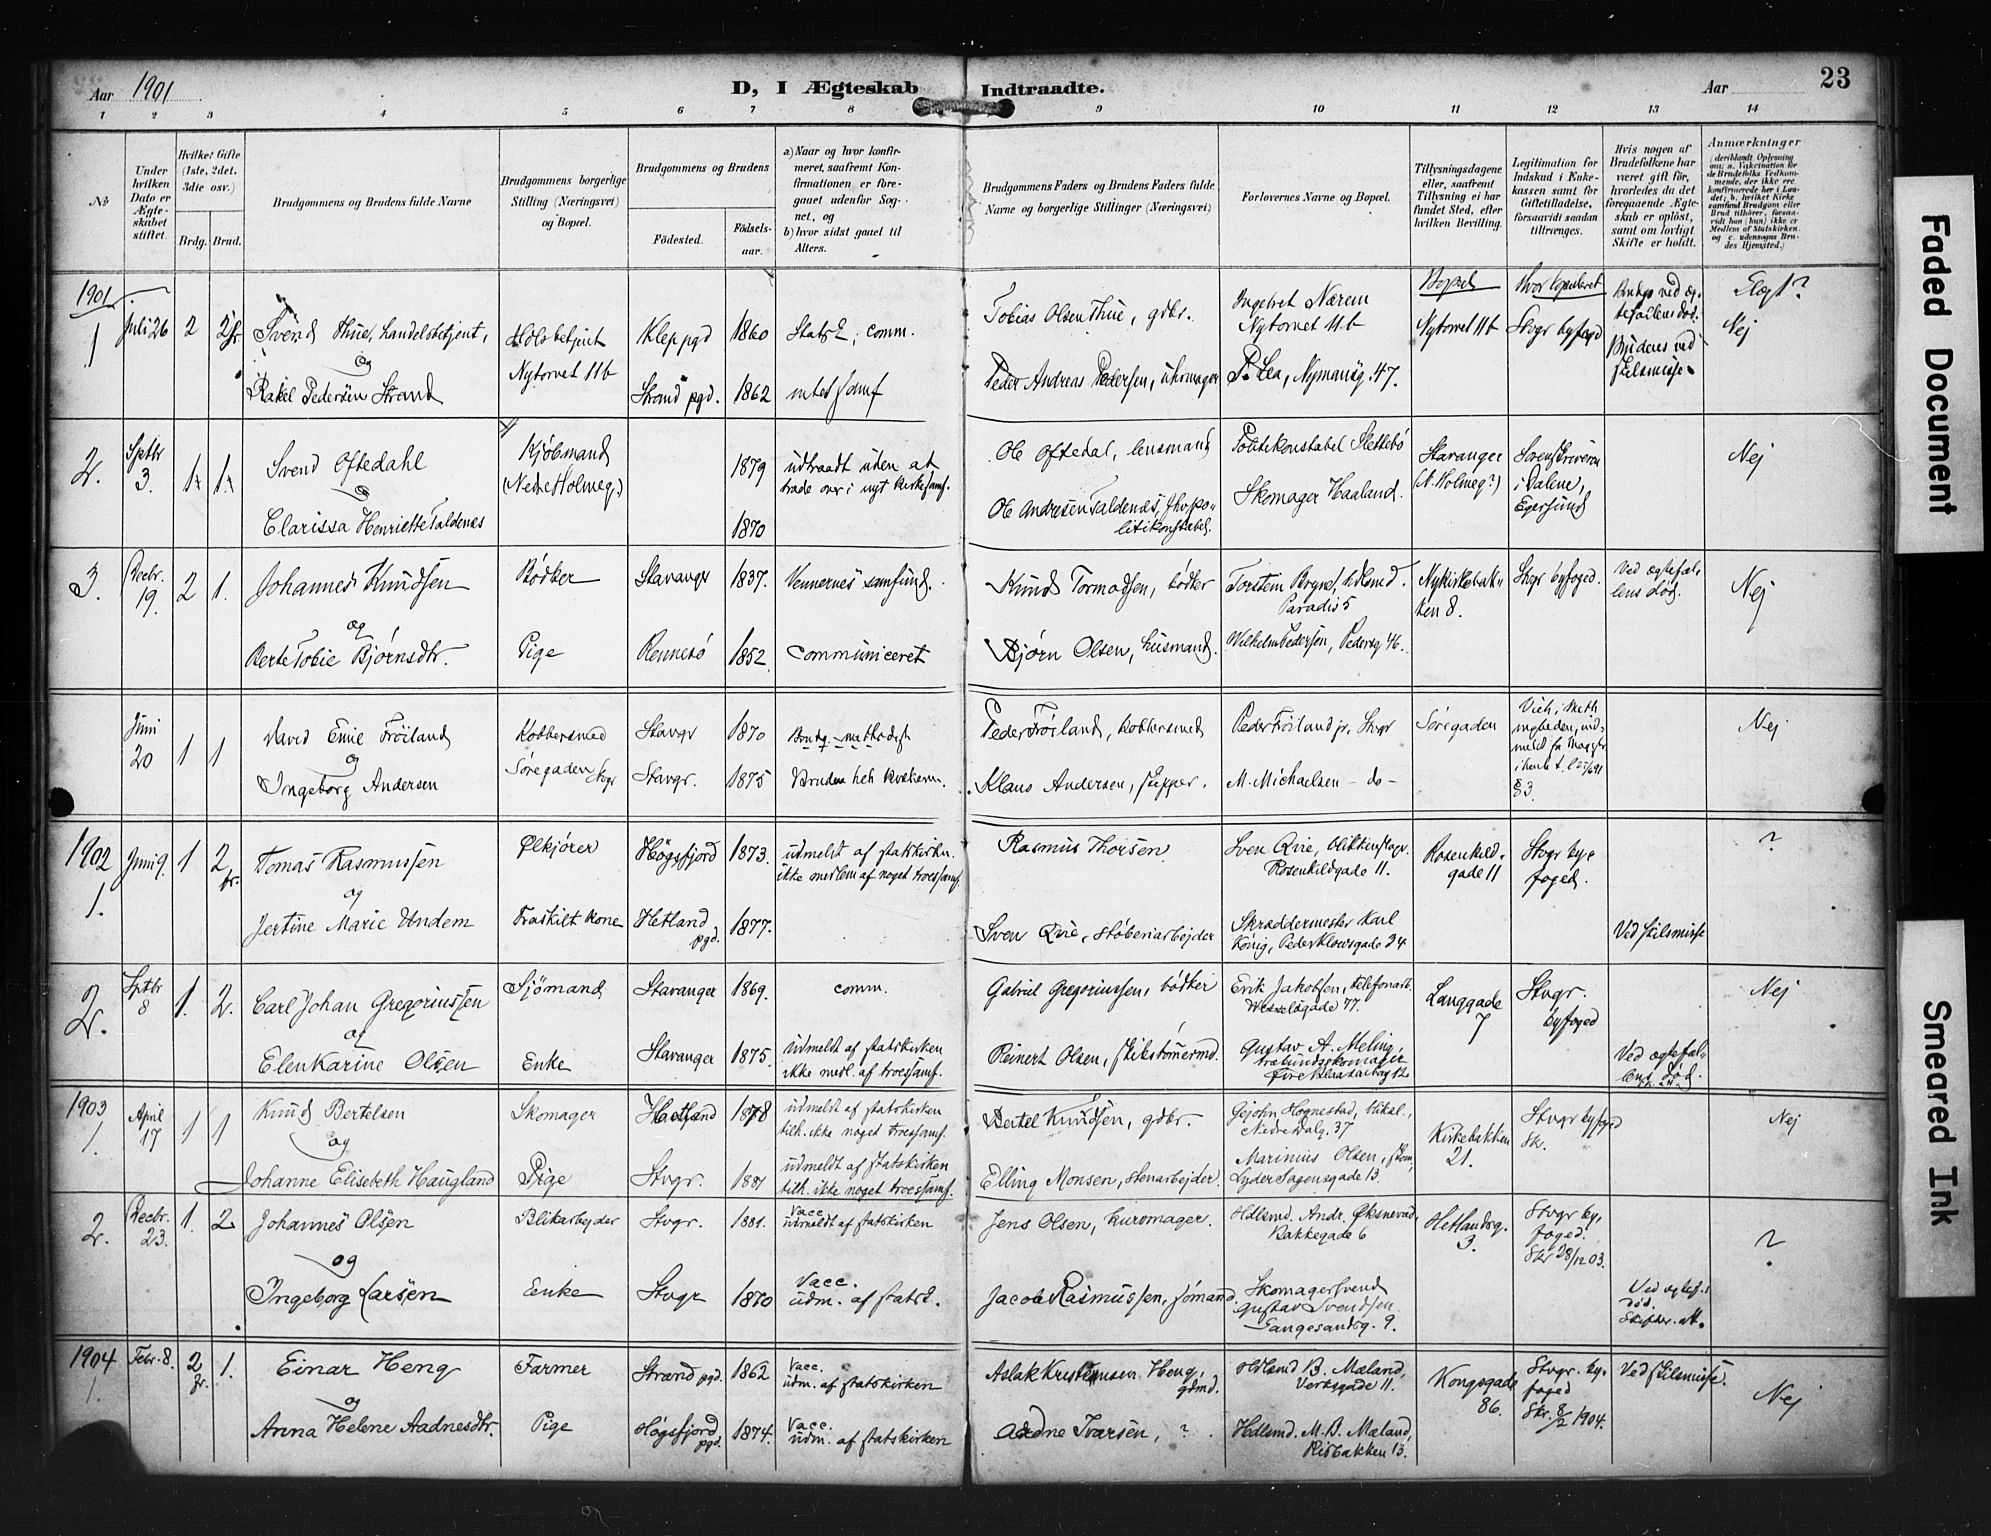 Aar 1901
D, I Ægteskab Indtraadte.
Aar
23
1 2 3 4 5 6 7 8 9 10 11 12 13 14
No
Under hvilken Dato er Ægteskabet stiftet.
Hvilket Gifte (1ste, 2det. 3die osv.)
Brdg. Brud.
Brudgommens og Brudens fulde Navne
Brudgommens borgerlige Stilling (Næringsvei) og Bopæl.
Brudgommens og Brudens
Födested.
Födselsaar.
a) Naar og hvor konfirmeret, saafremt Konfirmationen er foregaaet udenfor Sognet, og
b) hvor sidst gaaet til Alters.
Brudgommens Faders og Brudens Faders fulde Navne og borgerlige Stillinger (Næringsvei)
Forlovernes Navne og Bopæl.
Tillysningsdagene eller, saafremt Tillysning ei har fundet Sted, efter hvilken Bevilling.
Legitimation for Indskud i Enkekassen samt for Giftetilladelse, forsaavidt saadan tiltrænges.
Hvis nogen af Brudefolkene har været gift før, hvorledes da det foregaaende Ægteskab er oplöst, samt om lovligt Skifte er holdt.
Anmærkninger
(deriblandt Oplysning om: a. Vakcination for de Brudefolks Vedkommende, der ikke ere konfirmerede her i Landet; b. hvilket Kirkesamfund Brudgom eller Brud tilhörer, forsaavidt han (hun) ikke er Medlem af Statskirken og c. udensogns Brudes Hjemsted.)
1901
Bopæl
Slegt?
1 Juli 26 2 2 fr.
Svend Thue, handelsbetjent,
og
Rakel Pedersen Strand
Hdlsbetjent
Nytorvet 11b
Klep pgd 1860
Strand pgd. 1862
comm.
Tobias Olsen Thue, gdbr.
Peder Andreas Pedersen, uhrmager
Ingebret Nærem
Nytorvet 11b
P. Lea, Nymansg. 47.
Nytorvet 11b
Stvgr byfogd
Brudens ved skilsmisse
Nej
2. Sptbr 3. 1. 1.
Svend Oftedahl
og
Clarissa Henriette Taldenæs
Kjøbmand
(Nedre Holmeg.)
1879
1870
udtraadt uden at
træde over i nyt kirkesamf.
Ole Oftedal, lensmand
Ole Andresen Taldenæs, fhv. politikonstabel.
Politikonstabel Slettebö
Skomager Haaland.
Stavanger
(N. Holmeg?)
Sorenskriveren
i Dalene,
Egersund
Nej
3. Decbr. 19. 2 1.
Johannes Knudsen
og
Berte Tobie Bjørnsdtr.
Bødker
Pige
Stavangr 1837.
Rennesö 1852.
Vennernes samfund.
communiceret
Knud Tormodsen, bødker
Bjørn Olsen, husmand.
Torstein Bryne, hdlsmd.
Paradis 5
Wilhelm Pedersen, Pedersg 46.
Nykirkebakken 8.
Stvgr byfoged.
Ved ægtefællens död.
Nej
Juni 20 1 1
David Emil Fröiland
og
Ingeborg Andersen
Kobbersmed
Søregaden Stvgr
Stavgr 1870
Stavgr. 1875
Brudg. methodist
Bruden
Peder Fröiland, kobbersmed
Klaus Andersen, skipper.
Peder Fröiland jr, Stvgr
M. Michaelsen - do -
Søregaden
§ 3.
Nej
1902
1. Juni 9. 1 2 fr.
Tomas Rasmussen
og
Jertine Marie Undem
Ølkjører
Fraskilt kone
Høgsfjord 1873.
Hetland pgd. 1877.
udmeldt af statskirken.
ikke medlem af noget troessamf.
Rasmus Thorsen
Sven Qvie, støberiarbejder
Sven Qvie, blikkenslagr.
Rosenkildgade 11.
Skræddermester Karl
König, Peder Klowsgade 24
Rosenkildgade 11
Stvgr byfoged.
Ved skilsmisse
?
2. Sptbr 8 1. 2.
Carl Johan Gregoriussen
og
Elen Karine Olsen
Sjømand
Enke
Stavanger 1869.
Stavanger 1875.
comm.
udmeldt af statskirken
ikke medl. af troessamf.
Gabriel Gregoriussen, bødker
Reinert Olsen, skibstömermd.
Erik Jakobsen, telefonarb.
Wesselsgade 77.
Gustav A. Meling,
træbundsskomager
Øvre Blaasenborg 12
Langgade 7
Stvgr. byfoged
Ved ægtefællens död.
Nej
1903
1. April 17 1 1
Knud Bertelsen
og
Johanne Elisebeth Haugland
Skomager
Pige
Hetland 1878
Stvgr. 1881
udmeldt af statskirken
tilh. ikke noget troessamf.
udmeldt af statskirken
tilh. ikke noget troessamf.
Bertel Knudsen, gdbr.
Elling Monsen, stenarbejder.
Gejohn Hognestad,
Nedre Dalg. 37
Marinius Olsen, skom.
Lyder Sagensgade 13.
Kirkebakken 21.
Stvgr byfogd
Skr.
Nej
2. Decbr. 23. 1. 2
Johannes Olsen
og
Ingeborg Larsen
Blikarbejder
Enke
Stvgr. 1881.
Stvgr 1870
Vacc.
udmeldt af statskirken
Vacc.
udm. af statsk.
Jens Olsen, kuromager.
Jacob Rasmussen, sømand
Hdlsmd. Andr. Øksnevad
Bakkegade 6
Skomagersvend
Gustav Svendsen
Langesandsg. 9.
Hetlandsg. 3.
Stvgr byfoged.
Skr 28/12 03.
Ved ægtef.s död.
?
1904
1. Febr. 8. 2 fr. 1.
Einar Heng
og
Anna Helene Aadnesdtr.
Farmer
Pige
Strand pgd. 1862
Høgsfjord pgd. 1874.
Vacc.
udm. af statskirken
Vacc.
udm. af statskirken
Aslak Kristensen Heng, gdmd.
Aadne Ivarsen, ?
Hdlsmd B. Mæland,
Verksgade 11.
Hdlsmd. M. B. Mæland,
Risbakken 13.
Kongsgade 86.
Stvgr. byfoged
Skr. 8/2 1904.
Ved skilsmisse.
Nej
Faded Document
Smeared Ink